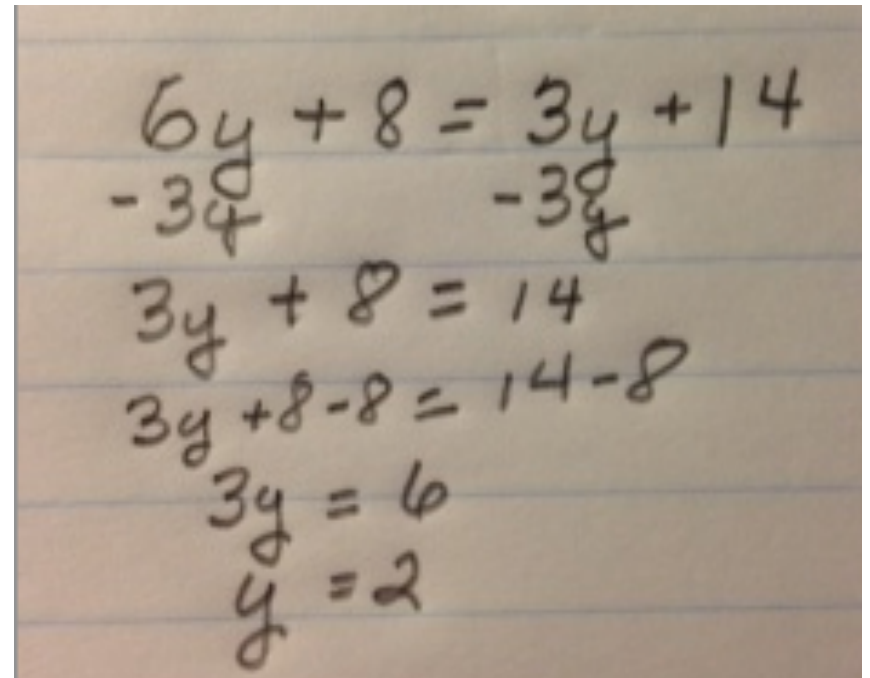 6y + 8 = 3y + 14
-3y -3y
3y + 8 = 14
3y +8-8 = 14-8
3y = 6
y = 2